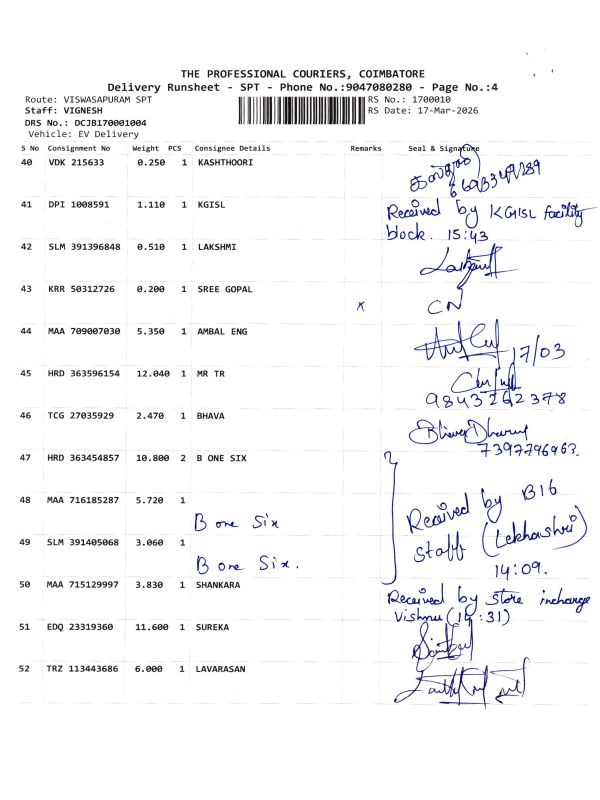 THE PROFESSIONAL COURIERS, COIMBATORE
Delivery Runsheet - SPT - Phone No.:9047080280 - Page No.:4
Route: VISWASAPURAM SPT RS No.: 1700010
Staff: VIGNESH RS Date: 17-Mar-2026
DRS No.: DCJB170001004
Vehicle: EV Delivery
S No Consignment No Weight PCS Consignee Details Remarks Seal & Signature
40 VDK 215633 0.250 1 KASHTHOORI
41 DPI 1008591 1.110 1 KGISL Received by KGISL facility
block. 15:43
42 SLM 391396848 0.510 1 LAKSHMI
43 KRR 50312726 0.200 1 SREE GOPAL x CN
44 MAA 709007030 5.350 1 AMBAL ENG 17/03
45 HRD 363596154 12.040 1 MR TR
9843262378
46 TCG 27035929 2.470 1 BHAVA
7397796963.
47 HRD 363454857 10.800 2 B ONE SIX
48 MAA 716185287 5.720 1 B one Six Received by B16
49 SLM 391405068 3.060 1 B one Six. staff (Lekhashri)
14:09.
50 MAA 715129997 3.830 1 SHANKARA Received by store incharge
Vishnu
51 EDQ 23319360 11.600 1 SUREKA
52 TRZ 113443686 6.000 1 LAVARASAN